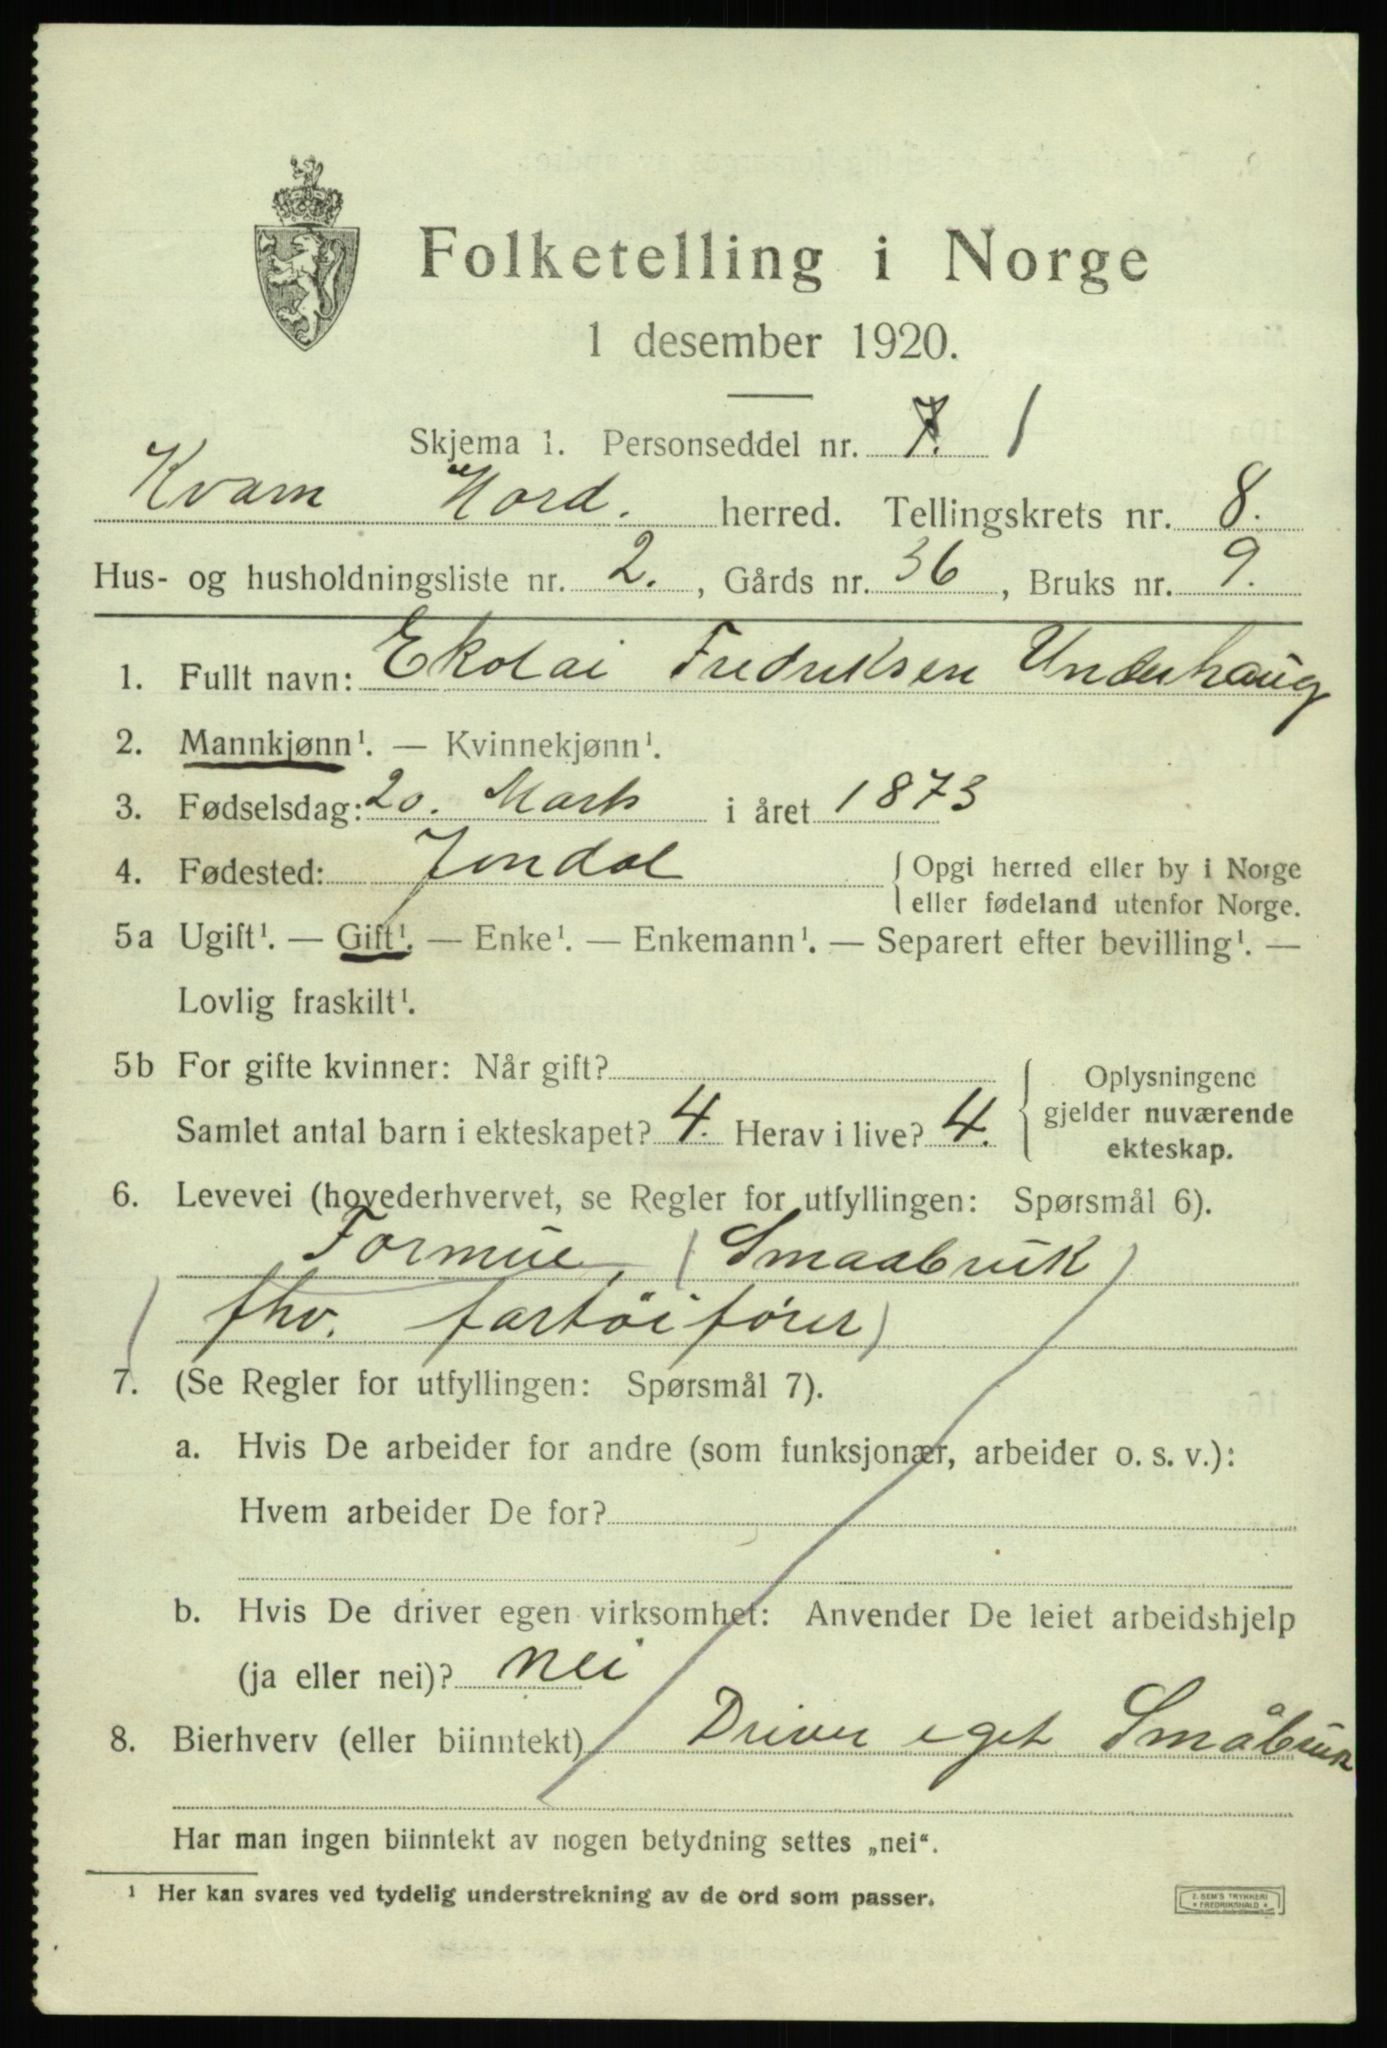 Folketelling i Norge
1 desember 1920.
Skjema 1. Personseddel nr. 7. 1
Kvam Hord. herred. Tellingskrets nr. 8.
Hus- og husholdningsliste nr. 2., Gårds nr. 36, Bruks nr. 9.
1. Fullt navn: Ekolai Fredriksen Underhaug
2. Mannkjønn¹. — Kvinnekjønn¹.
3. Fødselsdag: 20. Marts i året 1873
4. Fødested: Jondal { Opgi herred eller by i Norge
eller fødeland utenfor Norge.
5a Ugift¹. — Gift¹. — Enke¹. — Enkemann¹. — Separert efter bevilling¹. —
Lovlig fraskilt¹.
5b For gifte kvinner: Når gift?
Samlet antal barn i ekteskapet? 4. Herav i live? 4.
{ Oplysningene
gjelder nuværende
ekteskap.
6. Levevei (hovederhvervet, se Regler for utfyllingen: Spørsmål 6).
Formue, (Smaabruk)
(fhv. fartöifører)
7. (Se Regler for utfyllingen: Spørsmål 7).
a. Hvis De arbeider for andre (som funksjonær, arbeider o. s. v.):
Hvem arbeider De for?
b. Hvis De driver egen virksomhet: Anvender De leiet arbeidshjelp
(ja eller nei)? nei
8. Bierhverv (eller biinntekt) Driver eget Småbruk
Har man ingen biinntekt av nogen betydning settes „nei“.
¹ Her kan svares ved tydelig understrekning av de ord som passer.
E. SEM'S TRYKKERI
* FREDRIKSHALD *